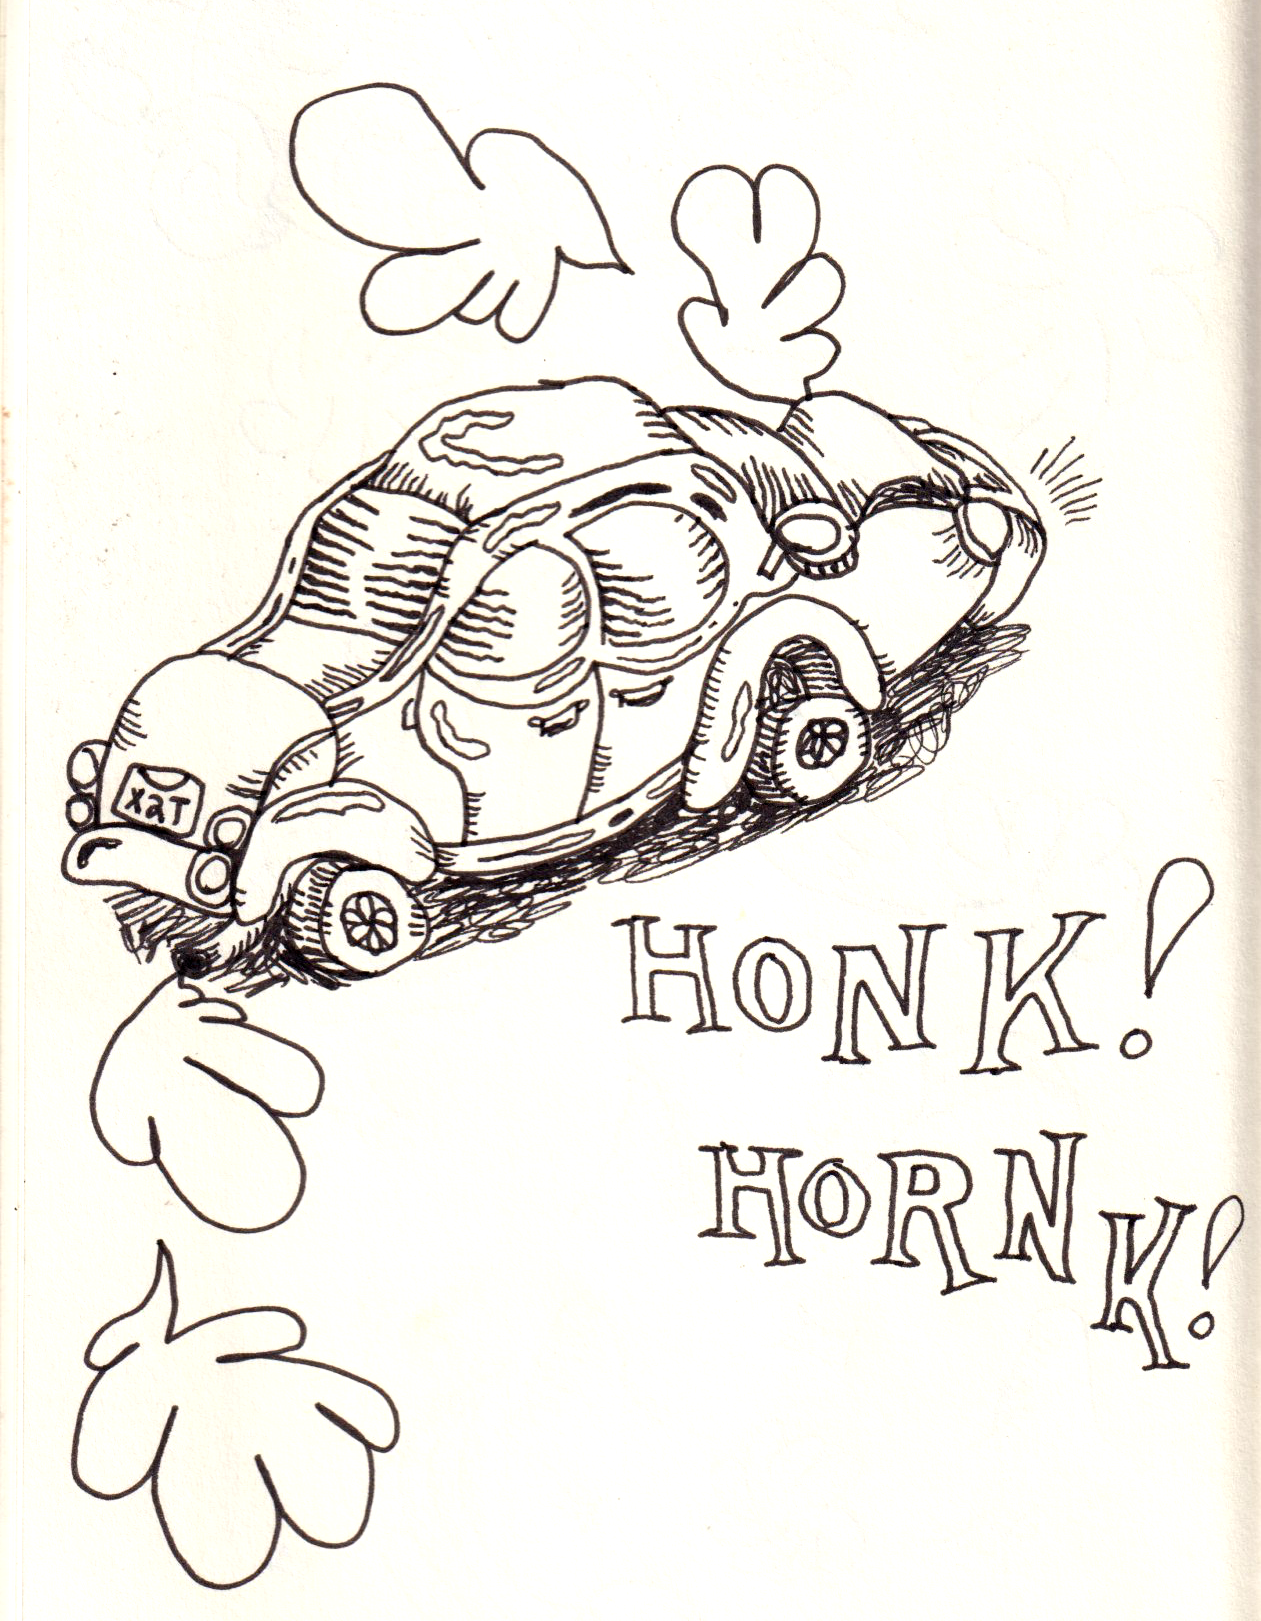 X2T
HONK!
HORNK!